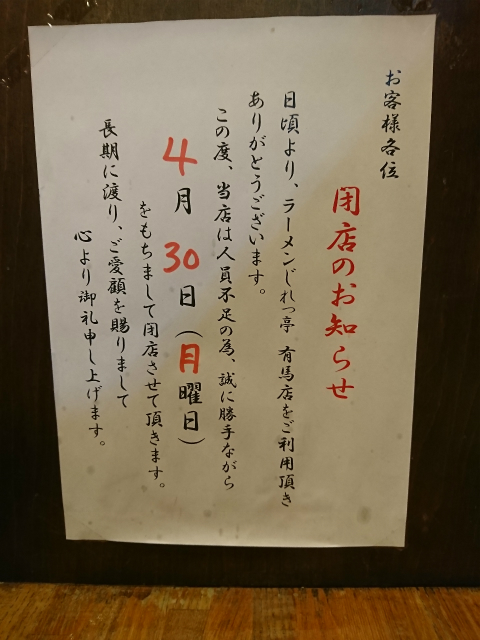 お客様各位
閉店のお知らせ
日頃より、ラーメンじれっ亭 有馬店をご利用頂き
ありがとうございます。
この度、当店は人員不足の為、誠に勝手ながら
4月30日(月曜日)
をもちまして閉店させて頂きます。
長期に渡り、ご愛顧を賜りまして
心より御礼申し上げます。